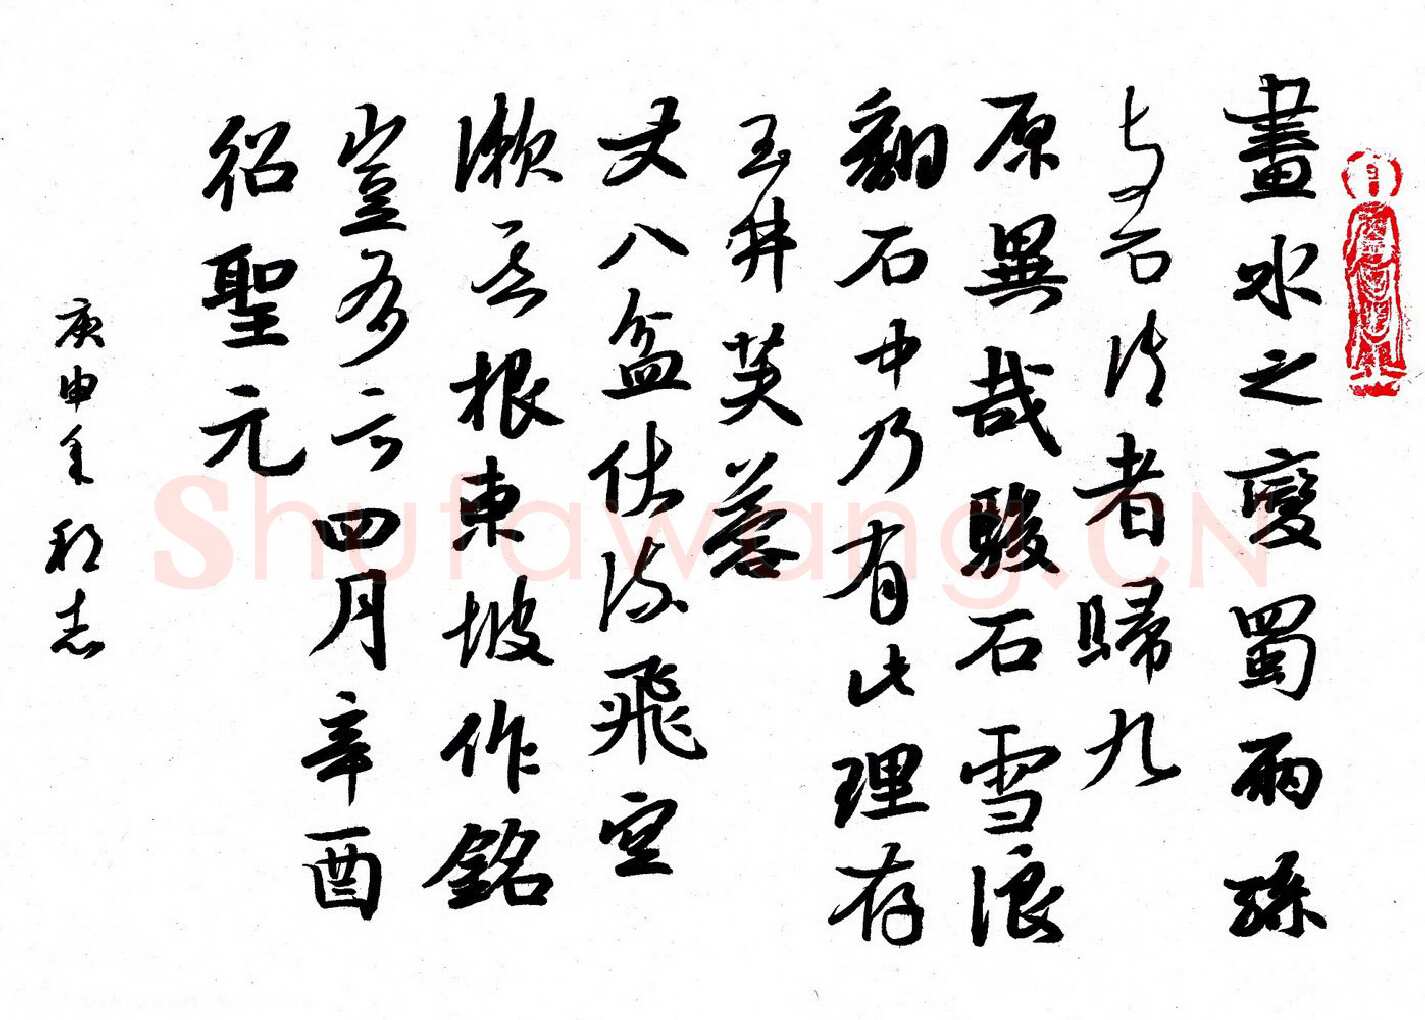 畫水之變蜀兩孫
与不傳者歸九
原異哉駁石雪浪
翻石中乃有此理存
玉井芙蓉
丈八盆伏流飛空
漱其根東坡作銘
豈多言四月辛酉
紹聖元
庚申年 志
Shufawang.CN